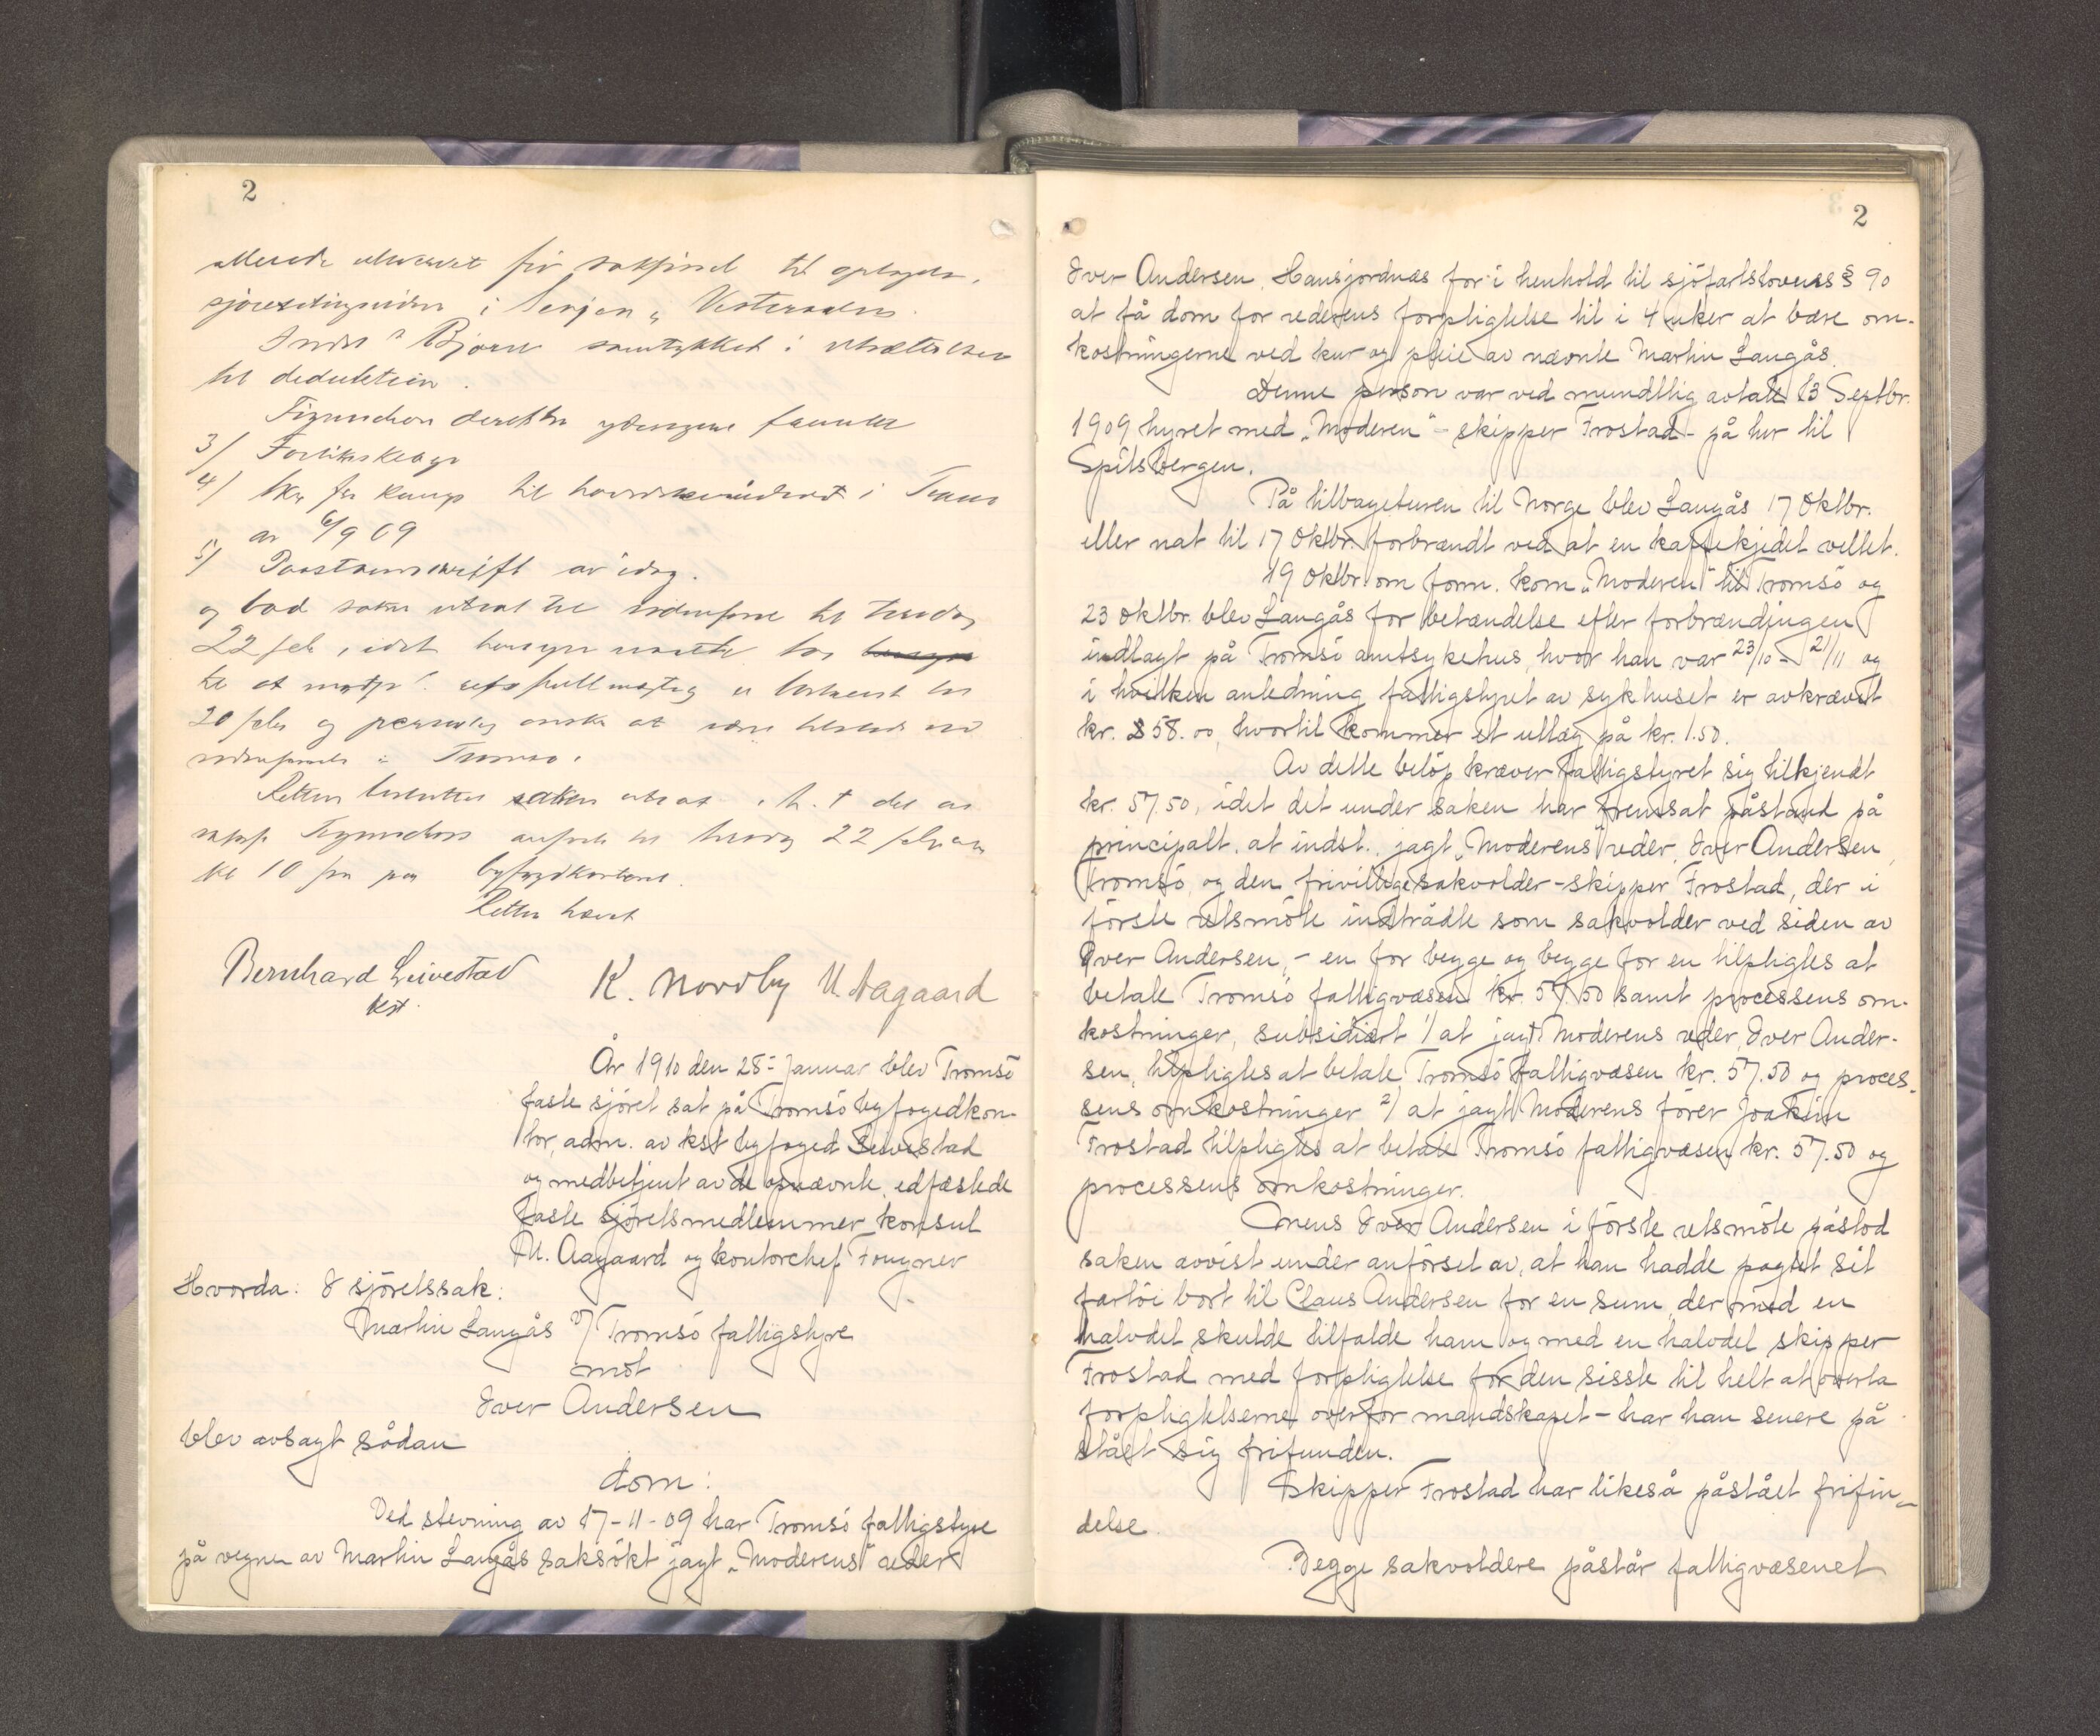 2
allerede før sakførsel til
sjørettigheden i Senjen " Vesteraalen.
Indst Bjørn samtykket i utsættelsen
til deduktion.
derefter
3/ Forlikskl.
4/ til i
av 6/9 09
5/ Paastandsskrift av idag.
og bad saken utsat til vidneførsel til tirsdag
22 feb, idet
til at er
20 febr og personlig ønsker at være tilstede ved
i Tromsø.
Retten besluttet saken utsat i h. t det av
til tirsdag 22 februar
kl 10 fm paa byfogdkontoret.
Retten hævet
Bernhard Leivestad K. Nordby M. Aagaard
kst.
År 1910 den 28- Januar blev Tromsö
faste sjöret sat på Tromsö byfogedkon-
tor, adm. av kst byfoged Leivestad
og medbetjent av de opnævnte, edfæstede
faste sjöretsmedlemmer, konsul
M. Aagaard og kontorchef Fougner
Hvorda: I sjöretssak:
Martin Langås v/ Tromsö fattigstyre
mot
Iver Andersen
blev avsagt sådan
dom:
Ved stevning av 17-11-09 har Tromsö fattigstyre
på vegne av Martin Langås saksökt jagt „Moderens" reder
2
Iver Andersen, Hansjordnæs for i henhold til sjöfartslovens § 90
at få dom for rederens forpligtelse til i 4 uker at bære om-
kostningerne ved kur og pleie av nævnte Martin Langås.
Denne person var ved mundtlig avtale 13 Septbr.
1909 hyret med „Moderen" - skipper Frostad - på tur til
Spitsbergen.
På tilbageturen til Norge blev Langås 17 Oktbr.
eller nat til 17 Oktbr. forbrændt ved at en kaffekjedel veltet.
19 Oktbr om form. kom „Moderen" til Tromsö og
23 oktbr. blev Langås for betændelse efter forbrændingen
indlagt på Tromsö amtsykehus, hvor han var 23/10 - 21/11 og
i hvilken anledning fattigstyret av sykhuset er avkrævet
kr. 58.00, hvortil kommer et utlæg på kr. 1.50.
Av dette belöp kræver fattigstyret sig tilkjendt
kr. 57.50, idet det under saken har fremsat påstand på
principalt, at indst., jagt „Moderens" reder, Iver Andersen,
Tromsö, og den frivillige sakvolder - skipper Frostad, der i
förste retsmöte indtrådte som sakvolder ved siden av
Iver Andersen, - en for begge og begge for en tilpligtes at
betale Tromsö fattigvæsen kr. 57.50 samt processens om-
kostninger, subsidiært 1/ at jagt Moderens reder, Iver Ander-
sen, tilpligtes at betale Tromsö fattigvæsen kr. 57.50 og proces-
sens omkostninger 2/ at jagt Moderens förer Joakim
Frostad tilpligtes at betale Tromsö fattigvæsen kr. 57.50 og
processens omkostninger.
Mens Iver Andersen i förste retsmöte påstod
saken avvist under anförsel av, at han hadde pagtet sit
fartöi bort til Claus Andersen for en sum, der med en
halvdel skulde tilfalde ham og med en halvdel skipper
Frostad med forpligtelse for den sisste til helt at overta
forpligtelserne overfor mandskapet - har han senere på
stået sig frifunden.
Skipper Frostad har likeså påstået frifin-
delse.
Begge sakvoldere påstår fattigvæsenet